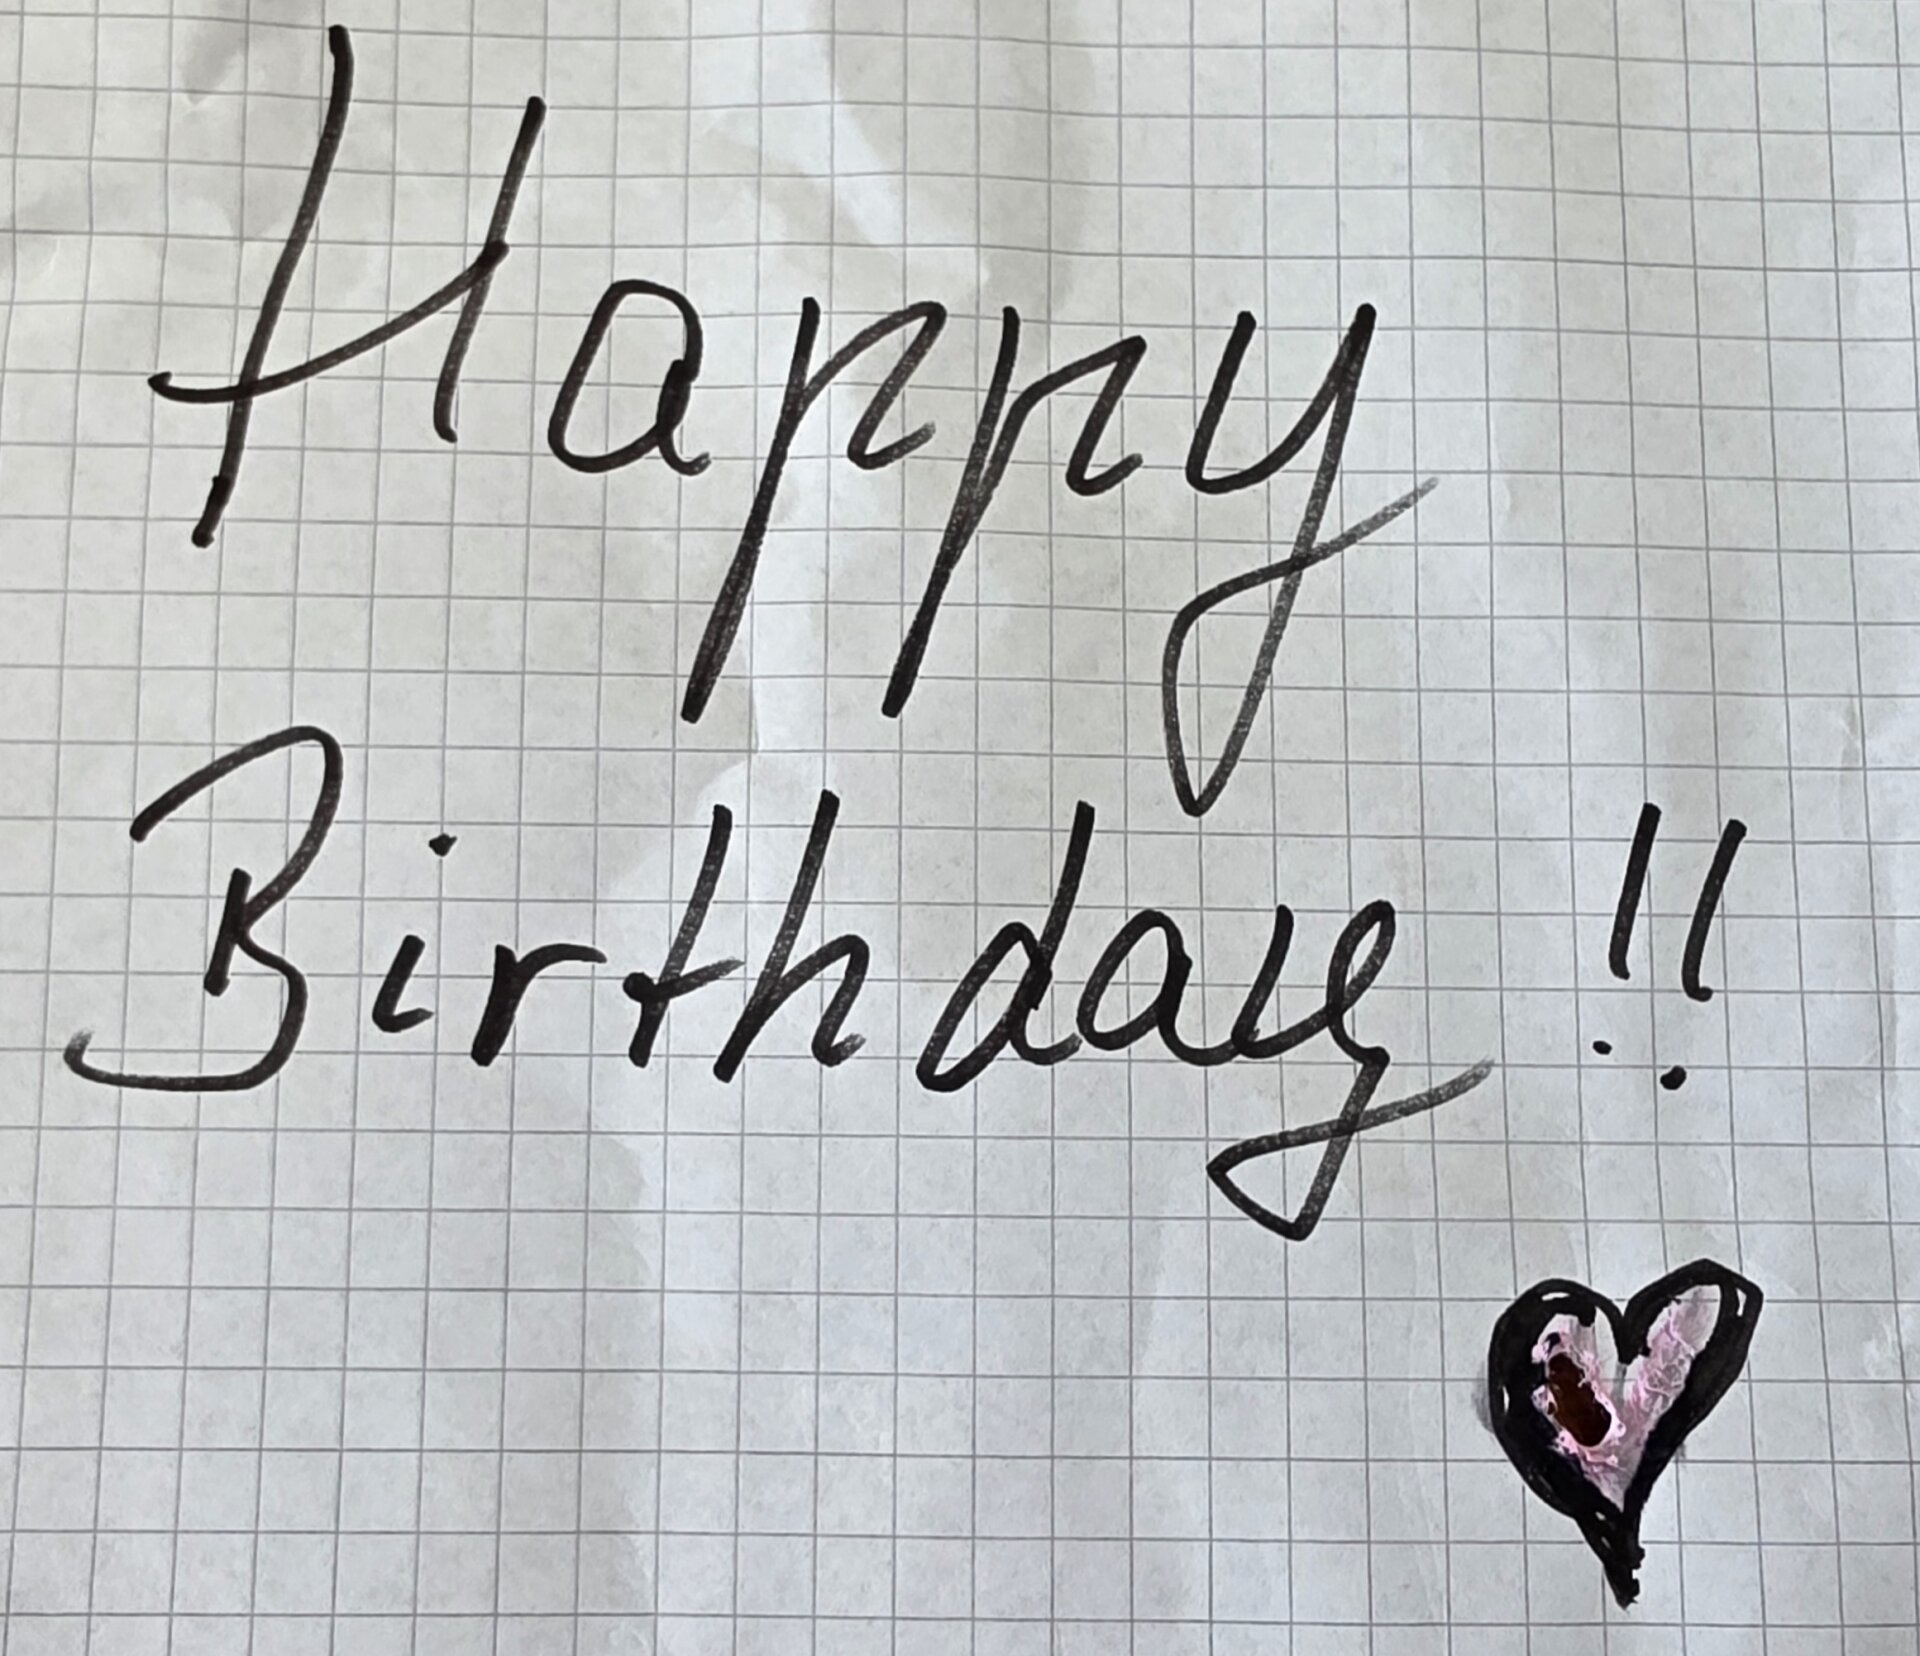 Happy
Birthday!!